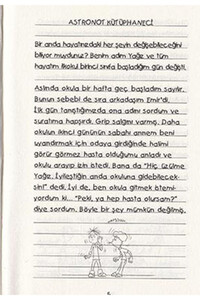 ASTRONOT KÜTÜPHANECİ
Bir anda hayatınızdaki her şeyin değişebileceğini
biliyor muydunuz? Benim adım Yağız ve tüm
hayatım ilkokul birinci sınıfa başladığım gün değişti.
Aslında okula bir hafta geç başladım sayılır.
Bunun sebebi de sıra arkadaşım Emir'di.
İlk gün tanıştığımızda ona adını sordum ve
suratıma hapşırdı. Grip salgını varmış. Daha
okulun ikinci gününün sabahı annem beni
uyandırmak için odaya girdiğinde halimi
görür görmez hasta olduğumu anladı ve
okulu arayıp izin istedi. Bana da "Hiç üzülme
Yağız, İyileştiğin anda okuluna gidebilecek-
sin!" dedi. İyi de, ben okula gitmek istemi-
yordum ki... "Peki, ya hep hasta olursam?"
diye sordum. Böyle bir şey mümkün değilmiş.